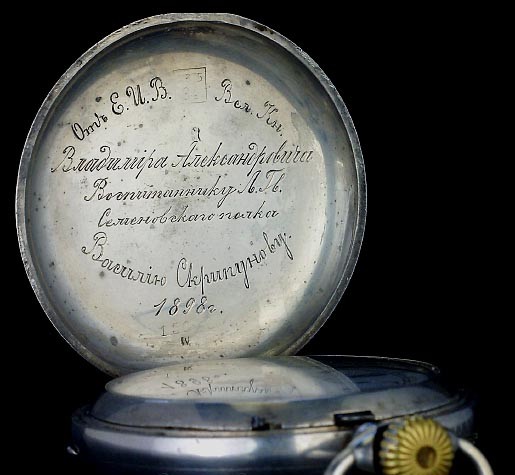 Отъ Е. И. В. Вел. Кн.
Владиміра Александровича
Воспитаннику Л. Гв.
Семеновскаго полка
Василію Скрипунову.
1898 г.